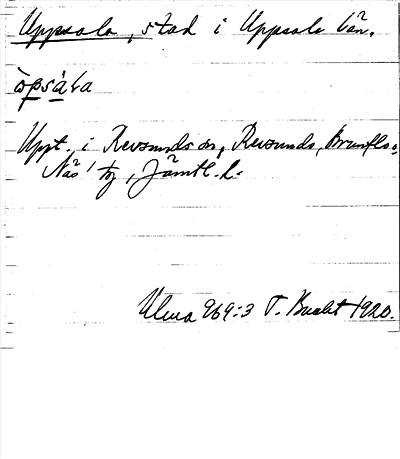 Uppsala, stad i Uppsala län.
òpsàla
Uppt. i Revsunds sn, Revsunds, Brunflo o.
Näs' tg, Jämtl. l.
Ulma 969:3 T. Bucht 1920.